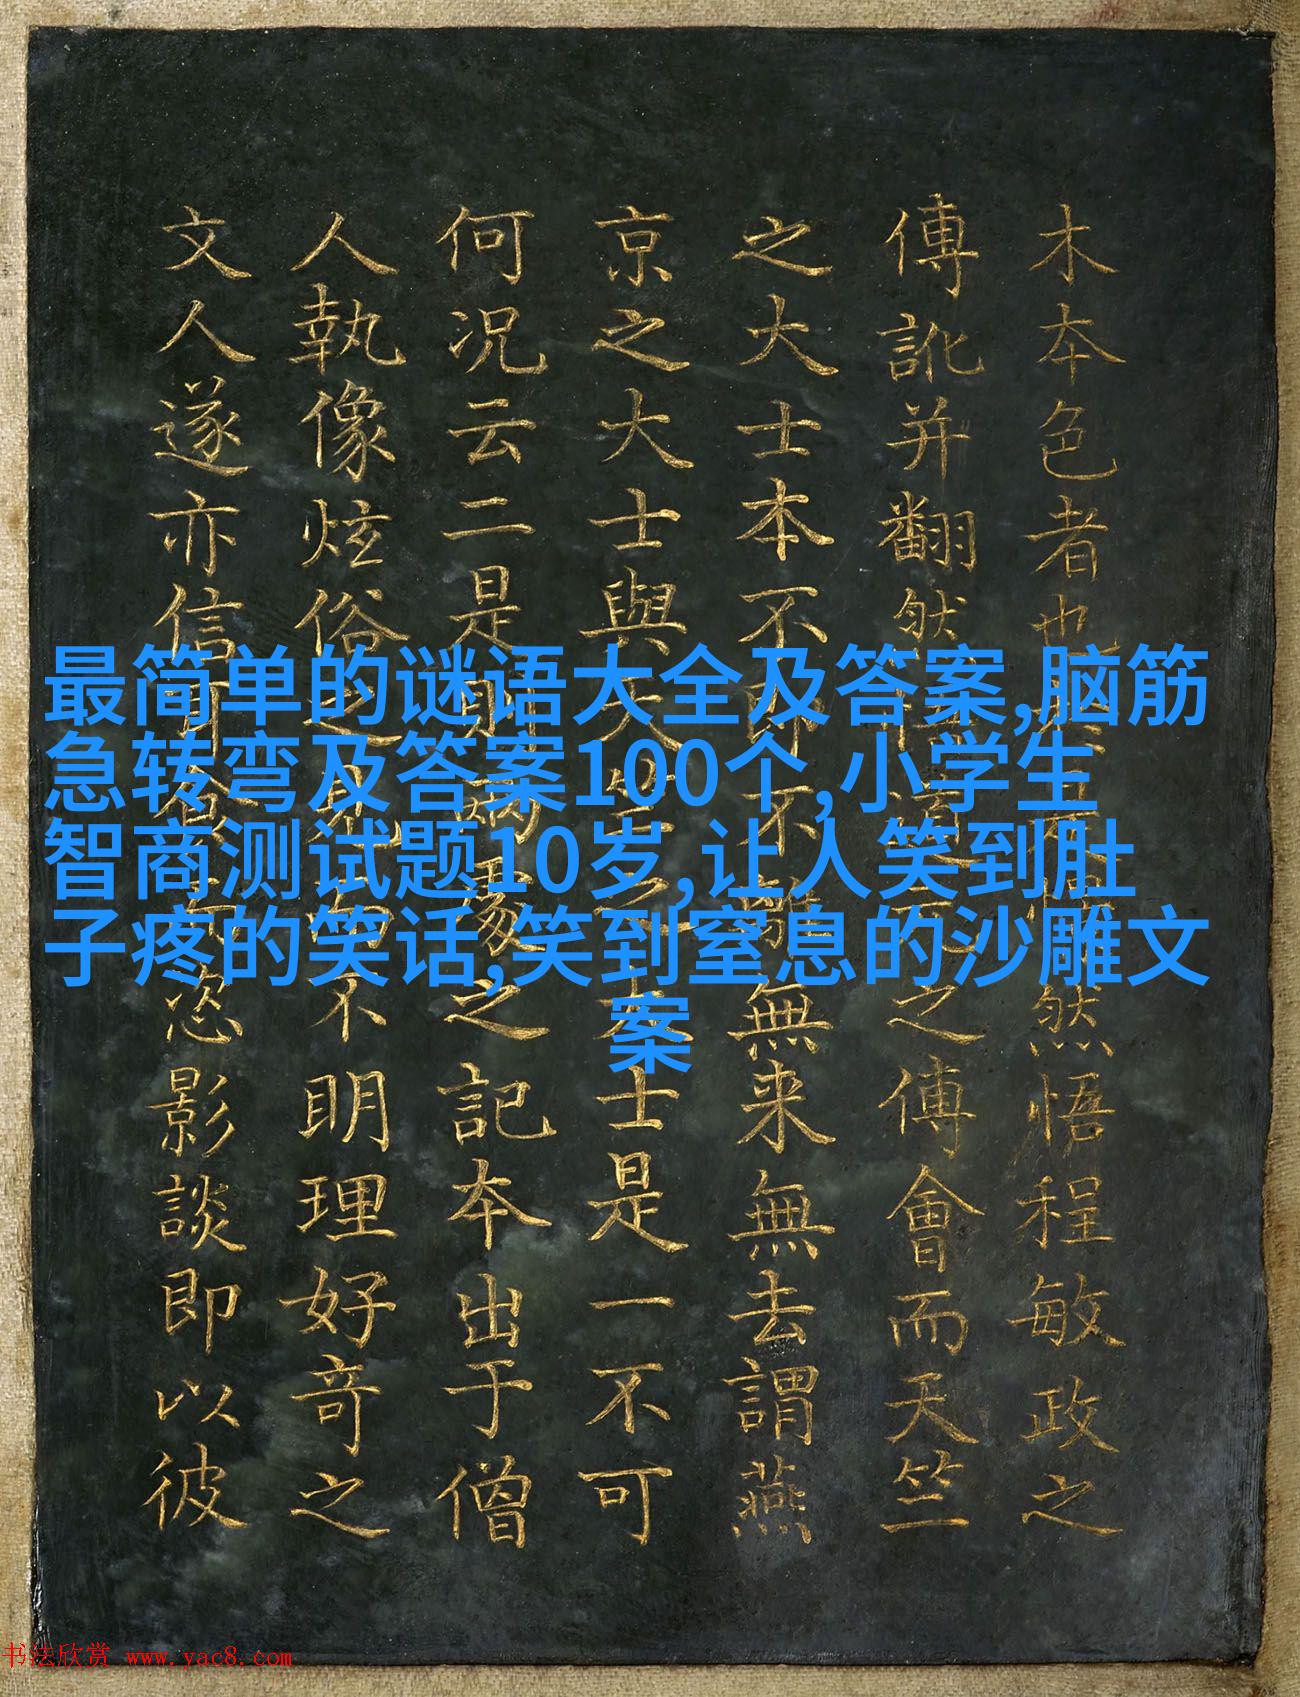 木本色者也然悟程敏政之
傳訛并翻然之傅會而天竺
之大士本不即不離無来無去謂燕
京之大士與天竺之大士是一不可
何況云二是則兩之記本出于僧
人執像炫俗之見不明理好奇之
文人遂亦信恣影談即以彼
最简单的谜语大全及答案,脑筋
急转弯及答案100个,小学生
智商测试题10岁,让人笑到肚
子疼的笑话,笑到窒息的沙雕文
案
书法欣赏 www.yac8.com